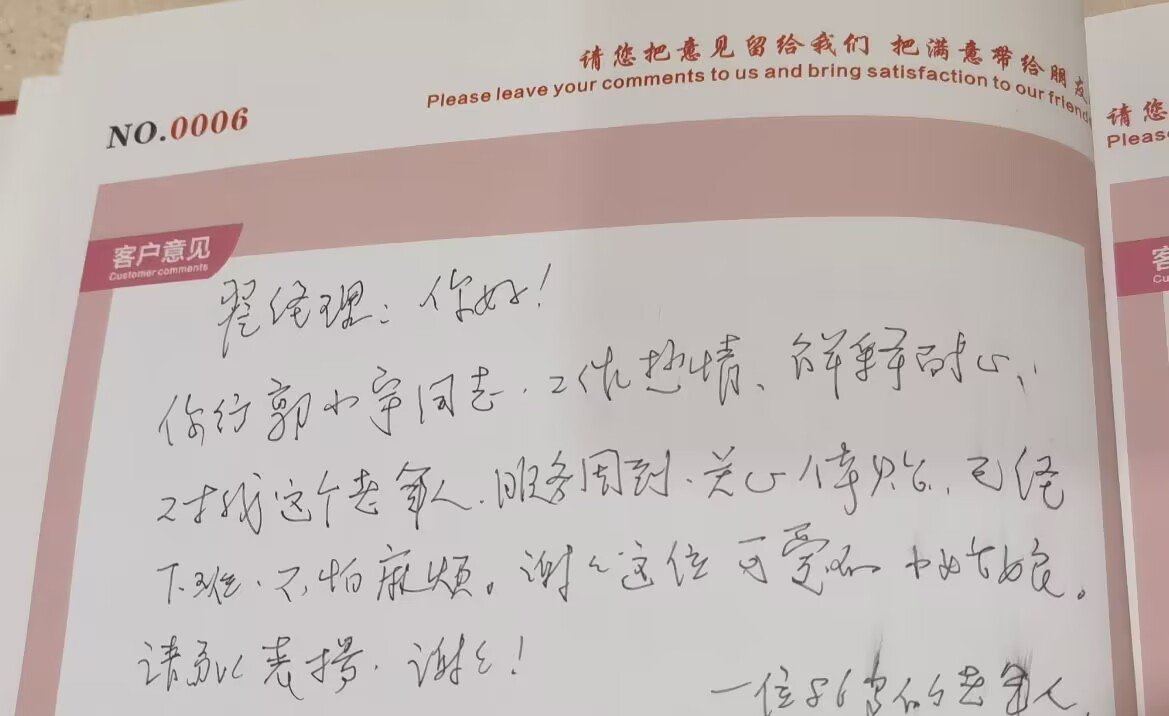 请您把意见留给我们 把满意带给朋友
Please leave your comments to us and bring satisfaction to our friend
NO.0006
请您
Pleas
客户意见
Customer comments
客
Cu
翟经理：你好！
你行郭小宇同志，工作热情、解释耐心，
对我这个老年人，服务周到，关心体贴，已经
下班，不怕麻烦。谢谢这位可爱的小姑娘。
请予以表扬，谢谢！
一位86岁的老年人